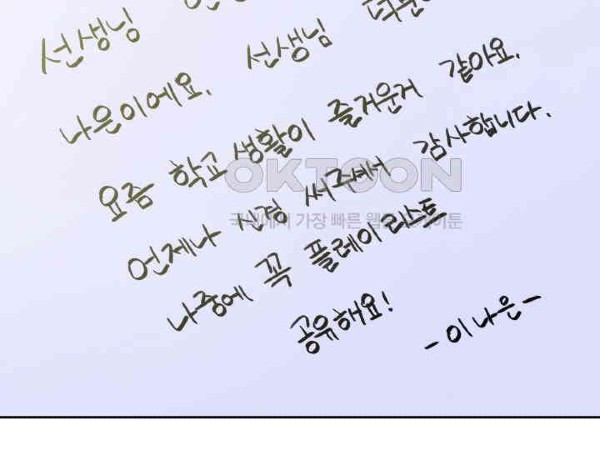 선생님
나은이에요. 선생님
요즘 학교 생활이 즐거운거 같아요.
언제나 신경 써주셔서 감사합니다.
나중에 꼭 플레이리스트
공유해요!
- 이나은 -
OKTOON
국내에서 가장 빠른 웹툰